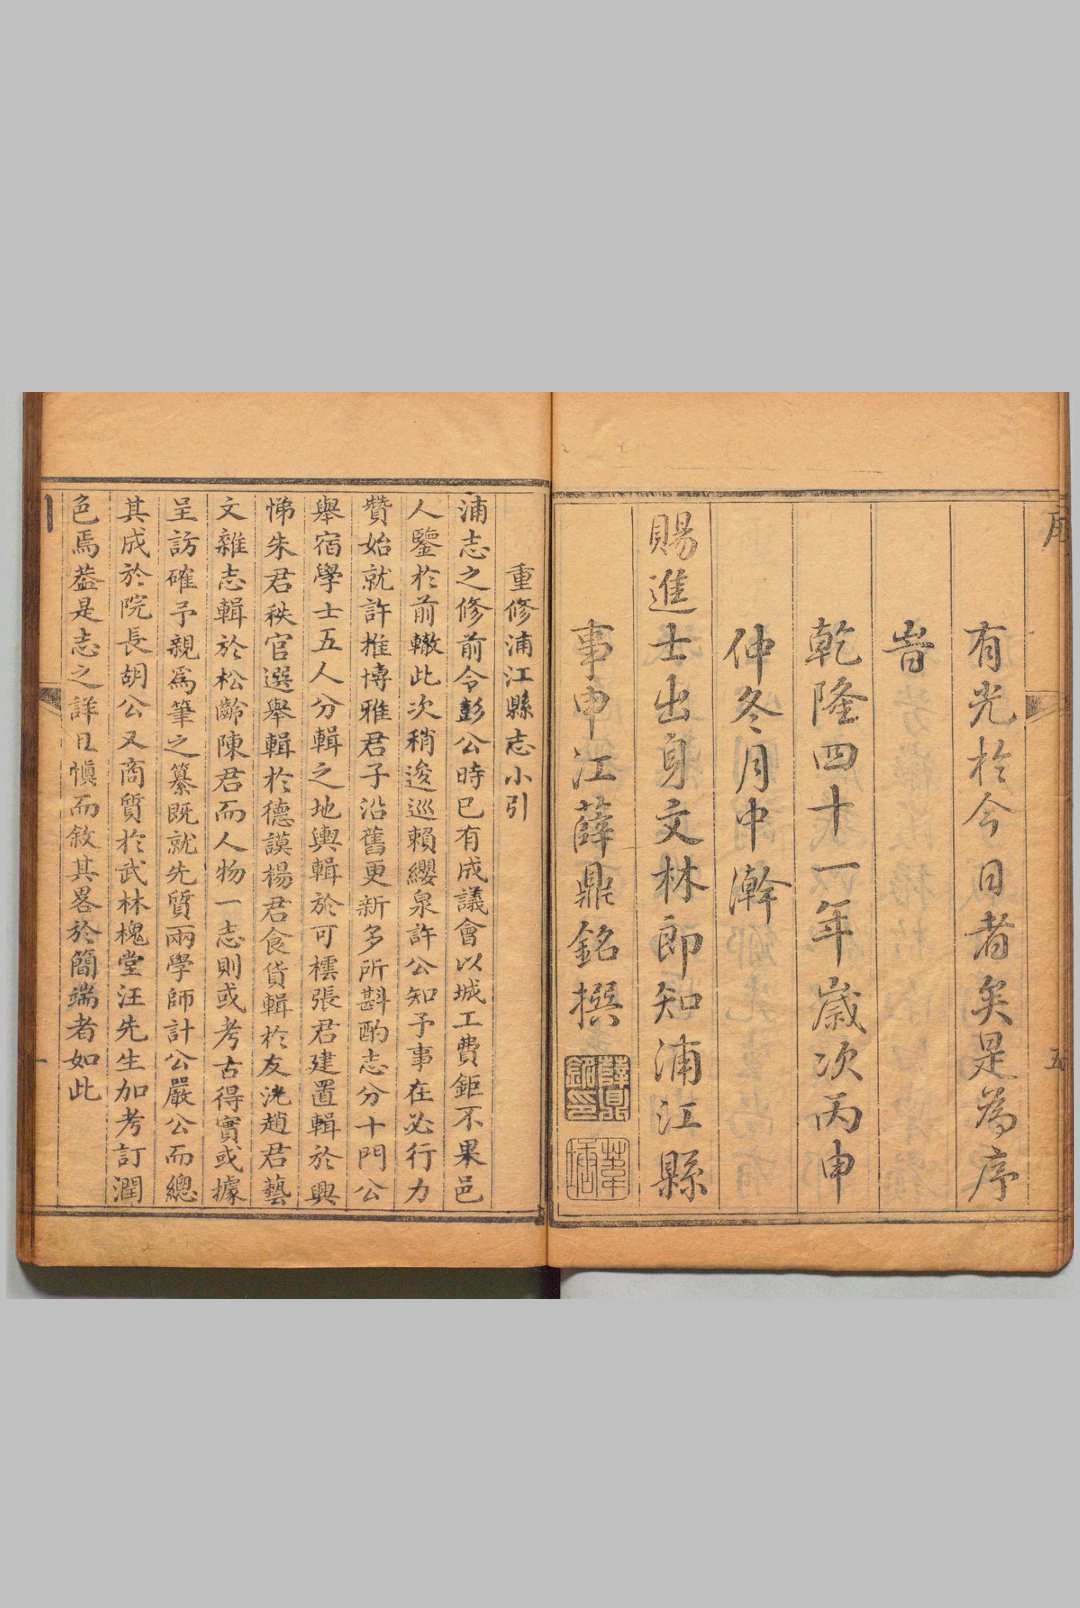 序
五
有光於今日者矣是為序
旹
乾隆四十一年歲次丙申
仲冬月中澣
賜進士出身文林郎知浦江縣
事申江薛鼎銘撰
薛鼎銘印
重修浦江縣志小引
浦志之修前令彭公時已有成議會以城工費鉅不果邑
人鑒於前轍此次稍逡巡賴纓泉許公知予事在必行力
贊始就許推博雅君子沿舊更新多所斟酌志分十門公
舉宿學士五人分輯之地輿輯於可橒張君建置輯於興
悌朱君秩官選舉輯於德謨楊君食貨輯於友洸趙君藝
文雜志輯於松齡陳君而人物一志則或考古得實或據
呈訪確予親爲筆之纂既就先質兩學師計公嚴公而總
其成於院長胡公又商質於武林槐堂汪先生加考訂潤
色焉葢是志之詳且愼而敘其畧於簡端者如此